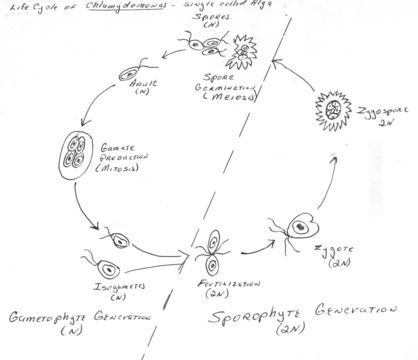 Life Cycle of Chlamydomonas - Single celled Alga
Spores
(N)
Adult
(N)
Spore
Germination
(Meiosis)
Zygospore
2N
Gamete
Production
(Mitosis)
Zygote
(2N)
Isogametes
(N)
Fertilization
(2N)
Gametophyte Generation
(N)
Sporophyte Generation
(2N)